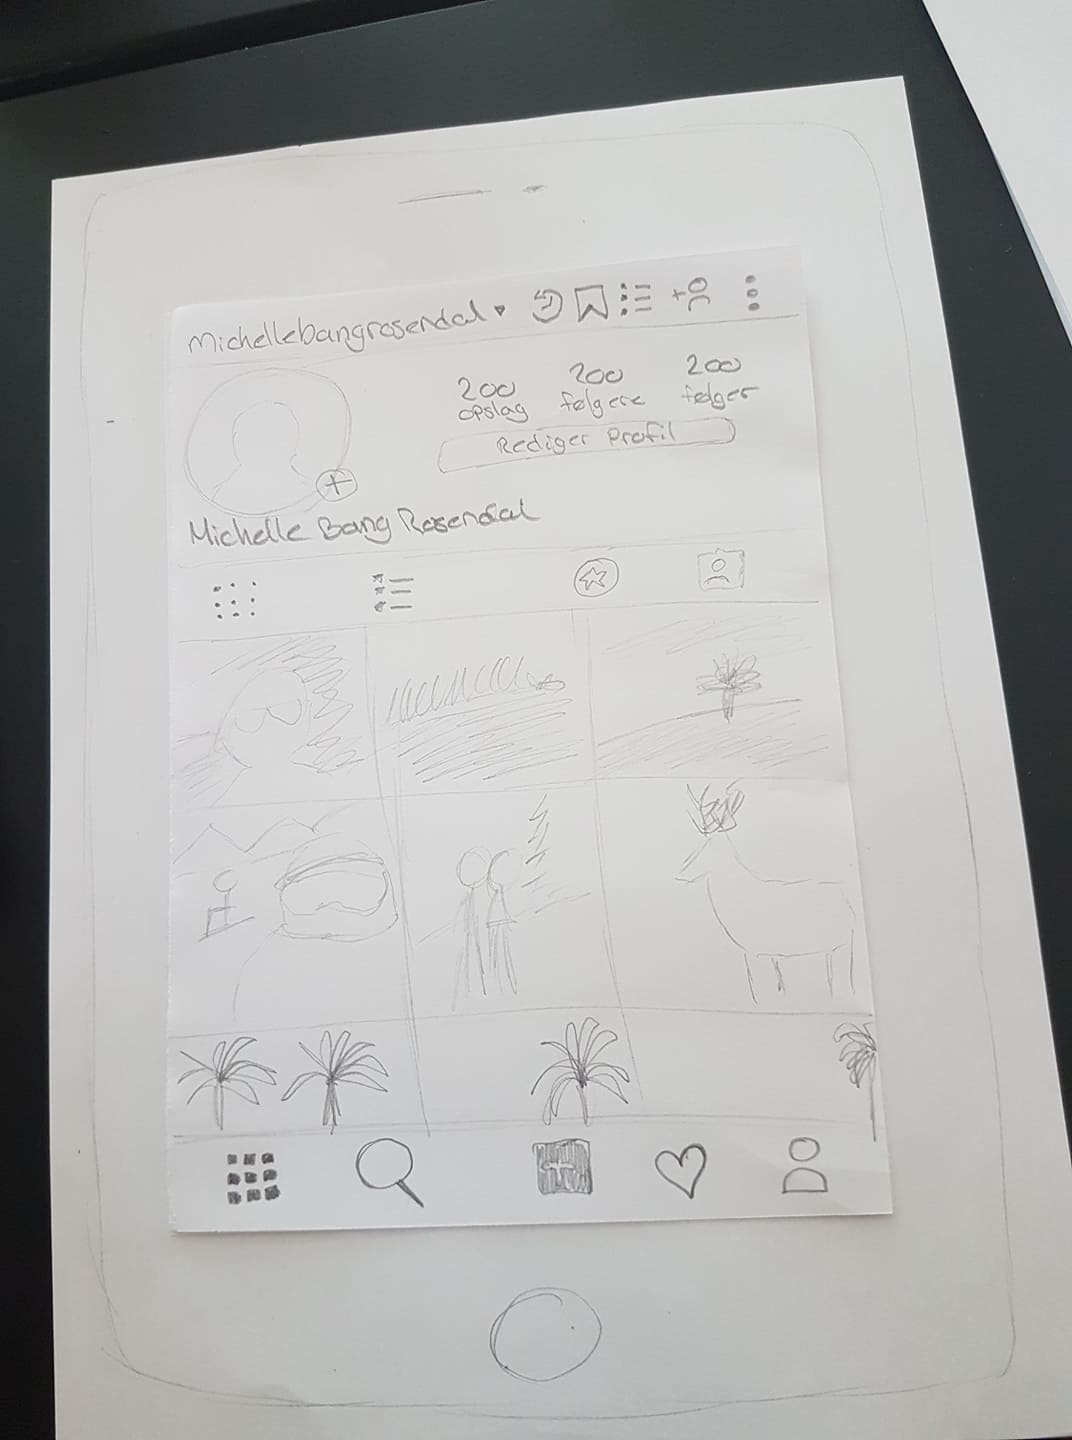 Michellebangrosendal
200 200 200
opslag følgere følger
Rediger Profil
Michelle Bang Rosendal